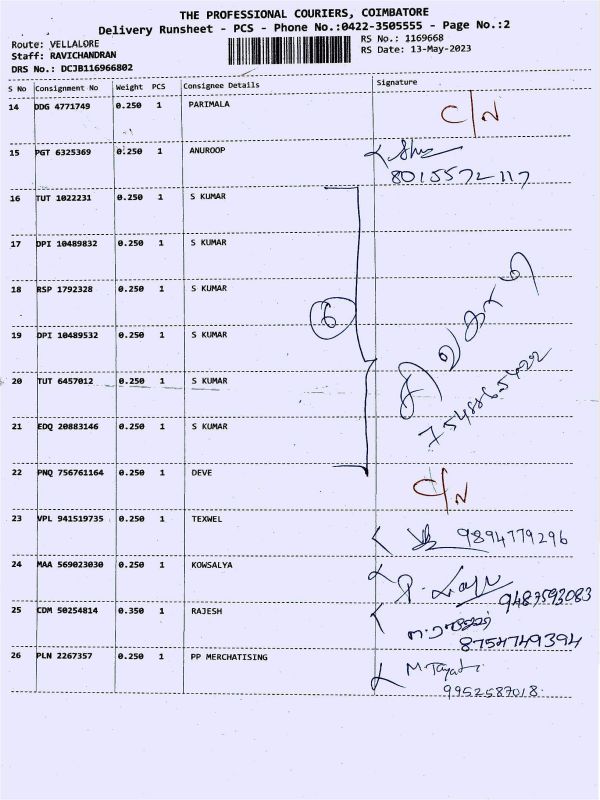 THE PROFESSIONAL COURIERS, COIMBATORE
Delivery Runsheet - PCS - Phone No.:0422-3505555 - Page No.:2
Route: VELLALORE
Staff: RAVICHANDRAN
DRS No.: DCJB116966802
RS No.: 1169668
RS Date: 13-May-2023
S No Consignment No Weight PCS Consignee Details Signature
14 DDG 4771749 0.250 1 PARIMALA C/N
15 PGT 6325369 0.250 1 ANUROOP
8015572117
16 TUT 1022231 0.250 1 S KUMAR
17 DPI 10489832 0.250 1 S KUMAR
18 RSP 1792328 0.250 1 S KUMAR
6
19 DPI 10489532 0.250 1 S KUMAR
20 TUT 6457012 0.250 1 S KUMAR
21 EDQ 20883146 0.250 1 S KUMAR
22 PNQ 756761164 0.250 1 DEVE C/N
23 VPL 941519735 0.250 1 TEXWEL 9894779296
24 MAA 569023030 0.250 1 KOWSALYA
9487593083
25 CDM 50254814 0.350 1 RAJESH
8754749394
26 PLN 2267357 0.250 1 PP MERCHATISING
9952587018